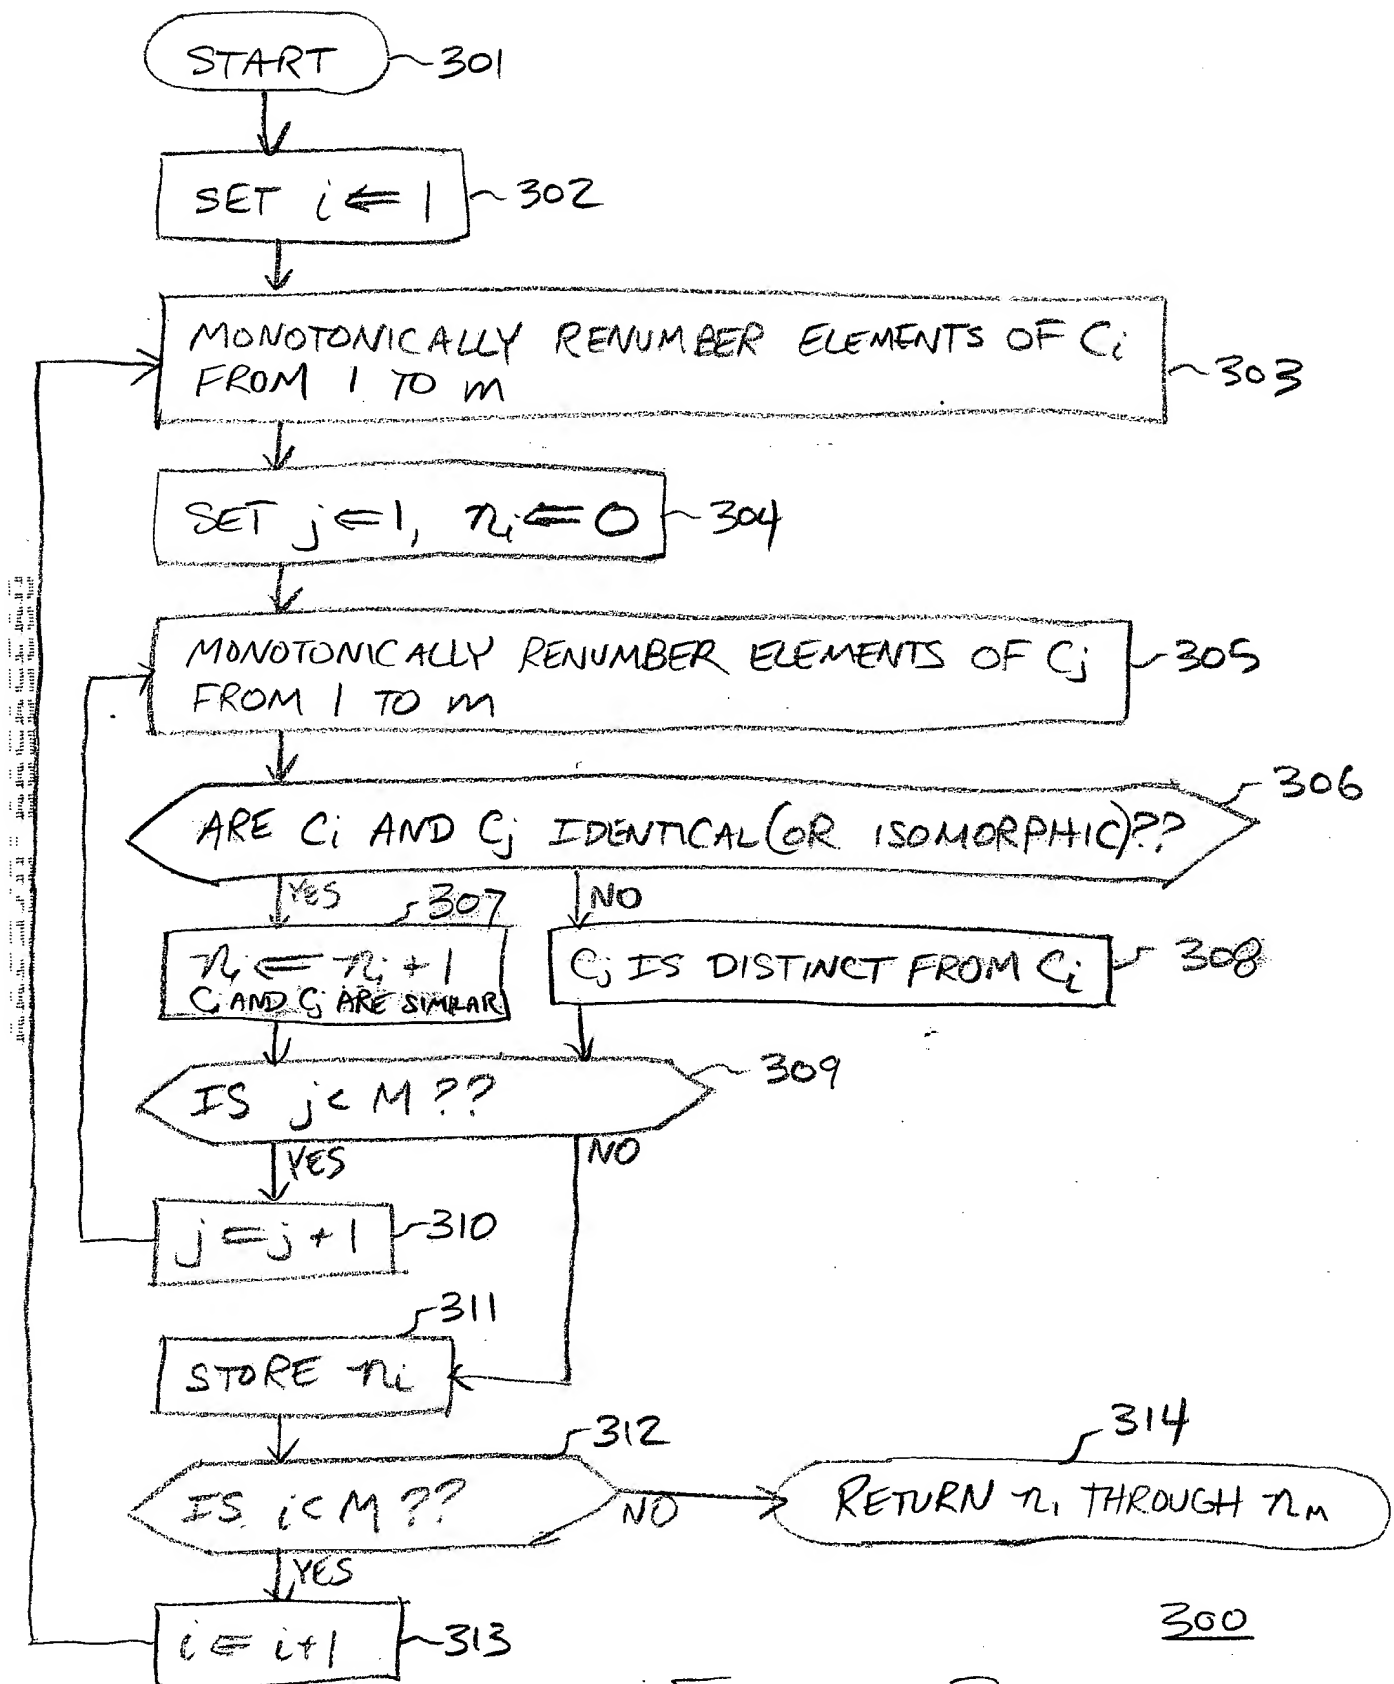 START 301
SET i ⇐ 1 302
MONOTONICALLY RENUMBER ELEMENTS OF Ci
FROM 1 TO m
303
SET j ⇐ 1, ni ⇐ 0 304
MONOTONICALLY RENUMBER ELEMENTS OF Cj
FROM 1 TO m
305
306
ARE Ci AND Cj IDENTICAL (OR ISOMORPHIC)??
YES
NO
307
ni ⇐ ni + 1
Ci AND Cj ARE SIMILAR
Cj IS DISTINCT FROM Ci 308
309
IS j < M ??
YES
NO
j ⇐ j + 1 310
311
STORE ni
312
IS i < M ??
NO
YES
314
RETURN n1 THROUGH nM
i ⇐ i+1 313
300